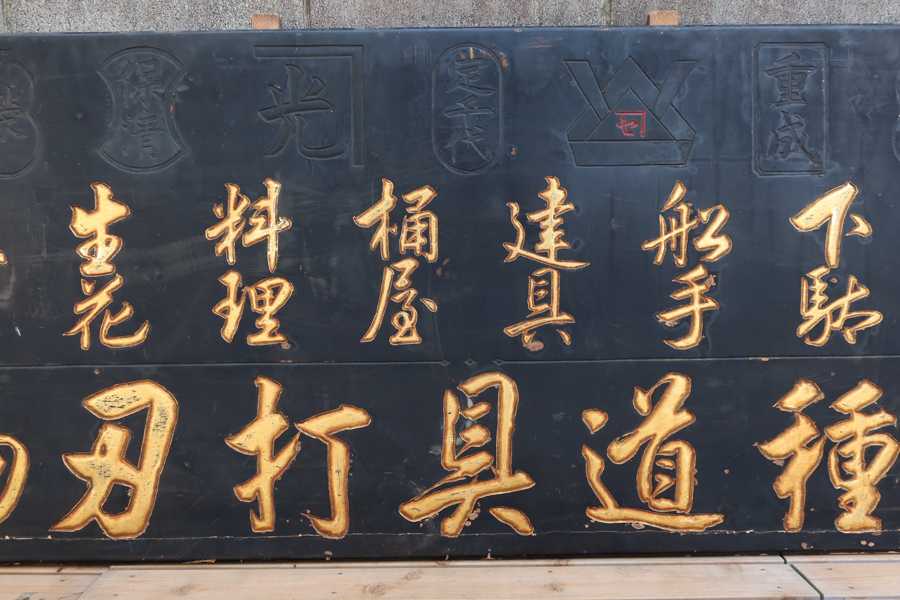 重成 セ 定千代 光
下駄 船手 建具 桶屋 料理 生花
種道具打刃